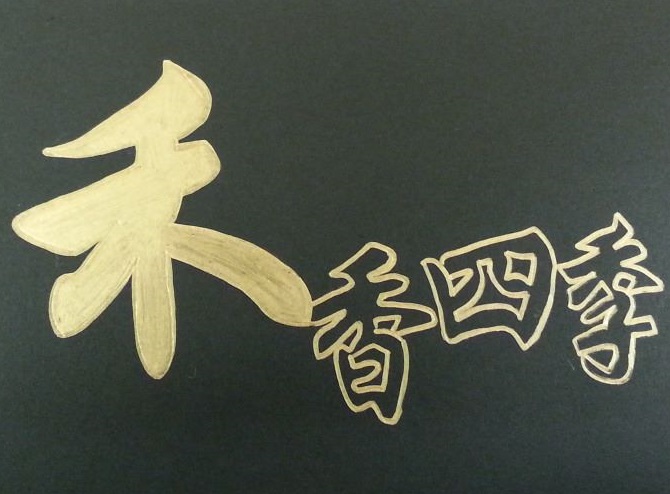 禾香四季